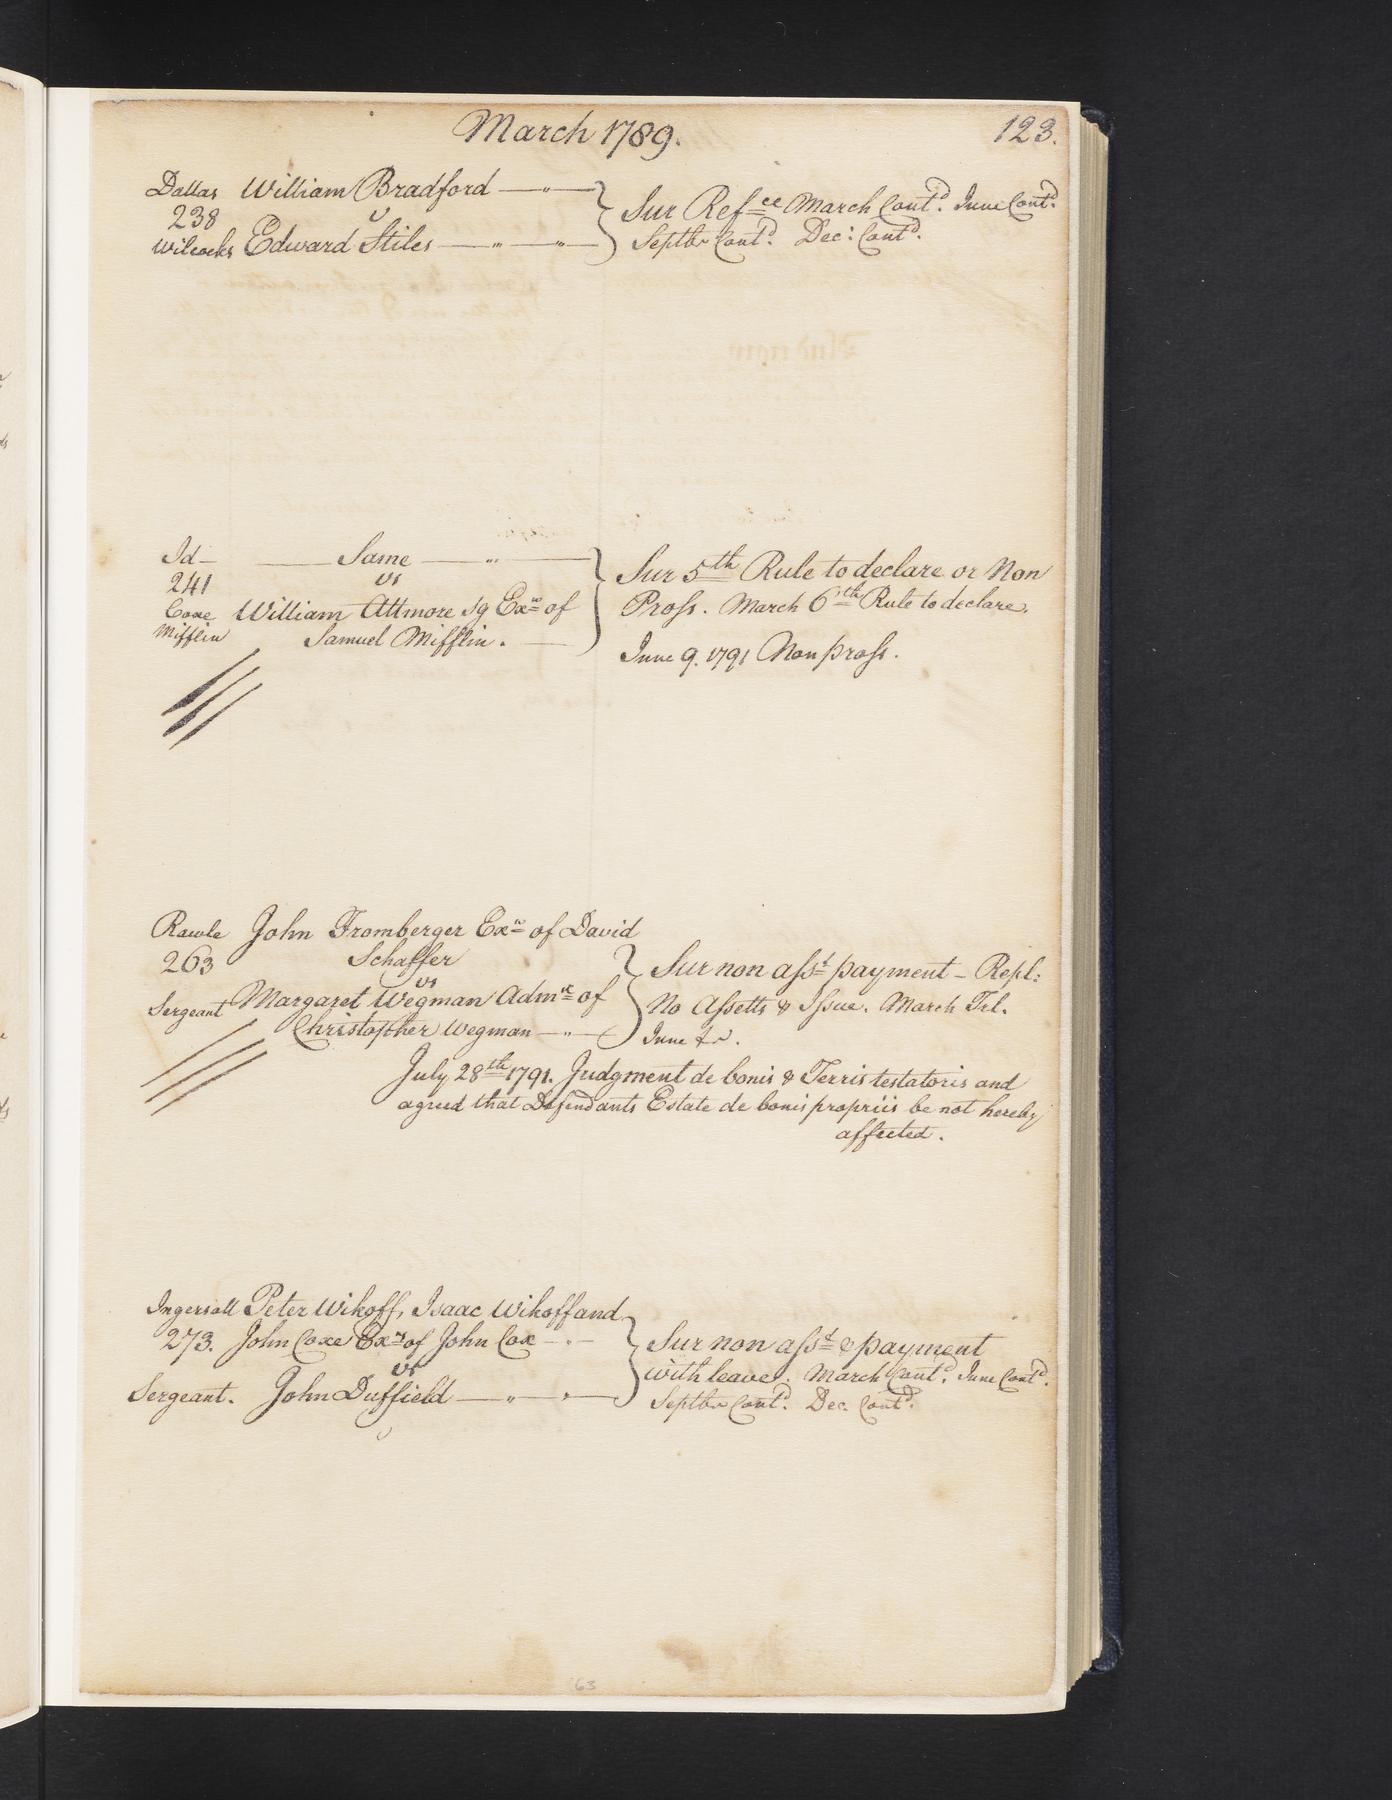 March 1789.
123.
Dallas William Bradford
Sur Refce March Contd. June Contd.
238 v
Wilcocks Edward Stiles
Septbr Contd. Dec: Contd.
Id Same
Sur 5th Rule to declare or Non
241 vs
Coxe William Attmore sg Exr of
Pross. March 6th Rule to declare.
Mifflin Samuel Mifflin.
June 9. 1791 Non pross.
Rawle John Fromberger Exr of David
263 Schaffer
Sur non asst payment - Repl:
vs
Sergeant Margaret Wegman Admx of
No Assetts & Issue. March Trl.
Christopher Wegman
June
July 28th 1791. Judgment de bonis & Terris testatoris and
agreed that Defendants Estate de bonis propriis be not hereby
affected.
Ingersoll Peter Wikoff, Isaac Wikoff and
273. John Coxe Exrs of John Cox
Sur non asst & payment
vs
with leave. March Contd. June Contd.
Sergeant. John Duffield
Septbr Contd. Dec. Contd.
63